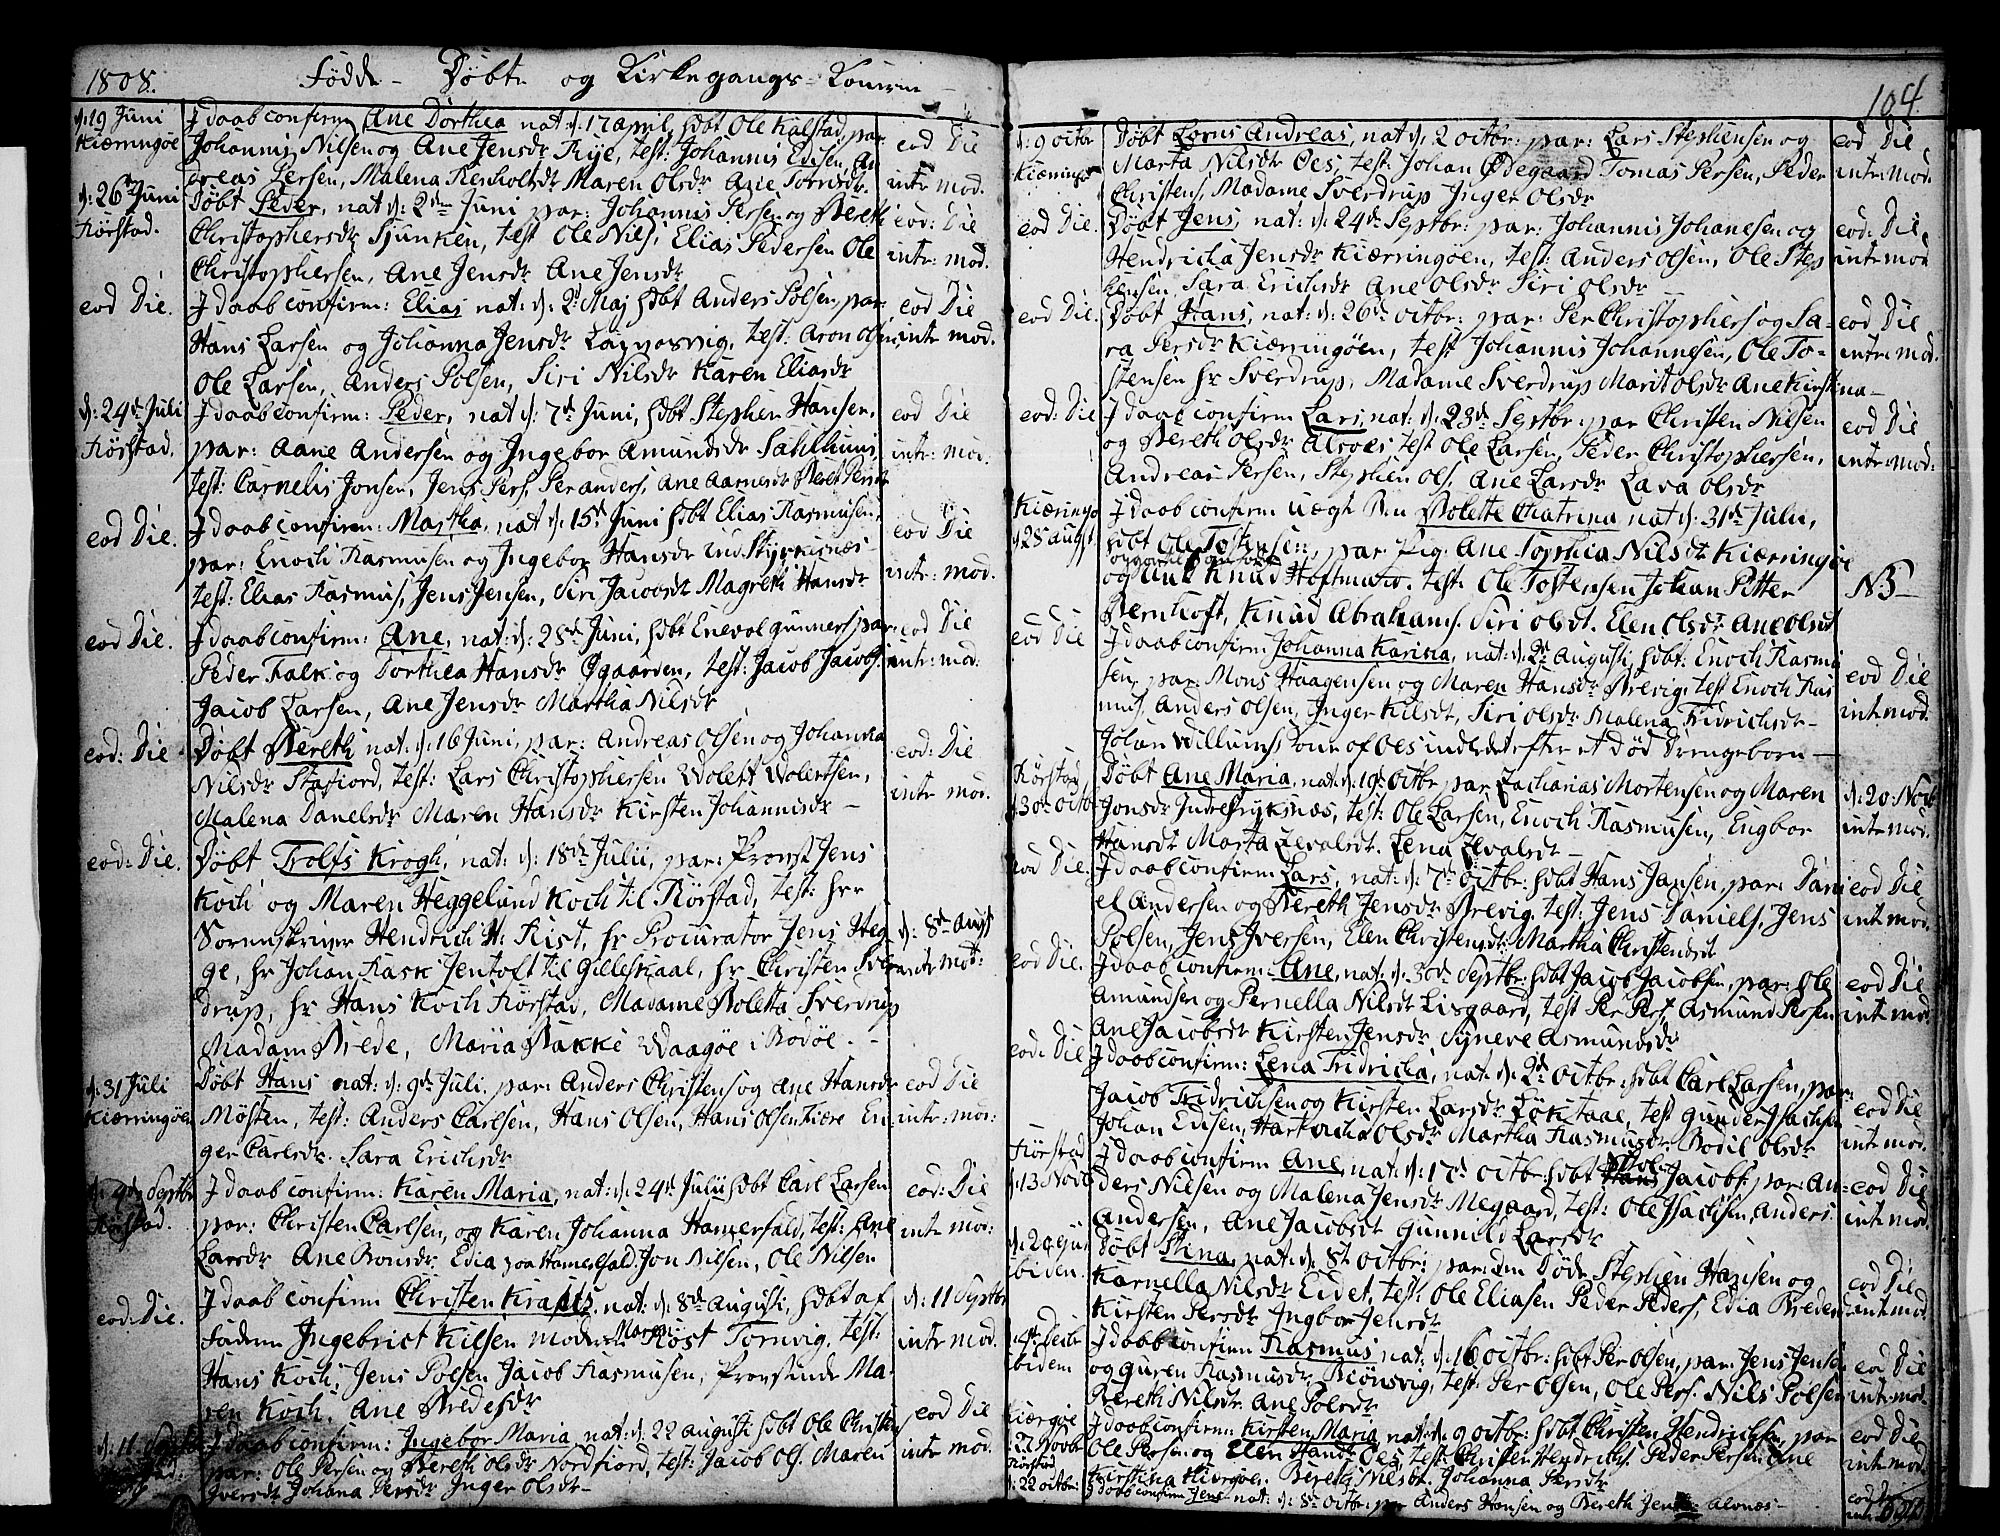 1808. Födde - Döbte og Kirkegangs-Kouerne -
d: 19 Juni
Kiærringöe
J daab confirm Ane Dorthea nat: d: 17 april, hdbt Ole Kalstad, par
Johannis Nilsen og Ane Jensdr Frye, test: Johannis Edisen, An
dreas Persen, Malena Renholtsdr Maren Olsdr Ane Torrisdr
eod Die
intr: mod.
d: 26 Juni
Rörstad.
Döbt Peder, nat: d: 2den Juni par: Johannis Persen og Bereth
Christophersdr Sjunken, test Ole Nils, Elias Pedersen Ole
Christophersen, Ane Jensdr Ane Jensdr
eod: Die
intr: mod.
eod Die.
J daab confirm: Elias nat: d: 2d Maj hdbt Anders Polsen, par
Hans Larsen og Johanna Jensdr test: Aron Olsen
Ole Larsen, Anders Polsen, Siri Nilsdr Karen Eliasdr
eod Die
intr mod.
d: 24d Juli
Rörstad.
J daab confirm: Peder, nat d: 7d Juni, hdbt Stephen Hansen,
par: Aane Andersen og Ingebor Amundsdr
test: Carnelis Jonsen, Jens Pers, Per anders, Ane Aarnesdr Beret Persdr
eod Die
intr: mod.
eod Die.
J daab confirm: Martha, nat d: 15d Juni hdbt Elias Rasmusen,
par: Enoch Rasmusen og Ingebor Hansdr ind. Styrkisnæs
test: Elias Rasmus, Jens Jensen, Siri Jacobsdr Magreth Hansdr
eod Die
intr: mod.
eod Die.
J daab confirm: Ane, nat: d: 28d Juni, hdbt Enevol gunners par:
Peder Falk og Dorthea Hansdr Øgaarden, test: Jacob Jacobs.
Jacob Larsen, Ane Jensdr Martha Nilsdr
eod Die
intr: mod:
eod: Die
Döbt Bereth nat: d: 16 Juni, par: Andreas Olsen og Johanna
Nilsdr Stafiord, test: Lars Christophersen Wolert Wolertsen,
Malena Danelsdr Maren Hansdr Kirsten Johannisdr -
eod: Die
intr mod.
eod: Die.
Döbt Trolfs Krogh, nat: d: 18d Julii, par: Provst Jens
Koch og Maren Heggelund Koch til Rörstad, test: hrr
Sorenskriver Hendrich H: Rist, hr Procurator Jens Heg-
ge, hr Johan Rask Jentoft til Gilleskaal, hr Christen Sver
drup, hr Hans Koch Rörstad, Madame Boletta Sverdrup
Madam Brede, Maria Bakke Waagøe i Bodöe. -
d: 8d Augs
intr mod:
d: 31 Juli
Kiærringöen
Döbt Hans nat: d: 9d Juli. par: Anders Christens og Ane Hansdr
Mösten, test: Anders Carlsen, Hans Olsen, Hans Olsen Fiære En-
ger Carlsdr. Sara Erichsdr
eod Die
intr: mod:
d: 4d Septbr
Rörstad.
J daab confirm: Karen Maria, nat: d: 24d Julii hdbt Carl Larsen
par: Christen Carlsen, og Karen Johanna Hamersfald, test: Ane
Larsdr Ane Bonsdr Edia paa Hamersfald. Jon Nilsen, Ole Nilsen
eod: Die
intr mod.
eod: Die.
J daab confirm Christen Krafts nat: d: 8d augusti, hdbt af
faderen Ingebrict Kilsen moder Höst Tornvig, test:
Hans Koch, Jens Polsen Jacob Rasmusen, Provstinde Ma-
ren Koch, Ane Bredesdr
d: 11 Septbr
intr mod.
d: 11 Septbr
J daab confirm: Ingebor Maria, nat: d: 22 augusti hdbt Ole Christen
par: Ole Persen og Bereth Olsdr Nordfiord, test: Jacob Ols. Maren
Iversdr Johana Persdr Inger Olsdr -
eod Die
intr mod.
104.
d: 9 octbr
Kiærringöe
Döbt Lorns Andreas, nat: d: 2 octbr: par: Lars Stephensen og
Marta Nilsdr Oes, test: Johan Ødegaard Tomas Persen, Peder
Christens, Madame Sverdrup Inger Olsdr
eod Die,
intr: Mod.
eod Die.
Döbt Jens, nat: d: 24d Septbr: par: Johannis Johanesen og
Hendricka Jensdr Kiærringöen, test: Anders Olsen, Ole Step
hensen, Sara Erichsdr Ane Olsdr Siri Olsdr
eod: Die,
intr: mod
eod Die.
Döbt Hans, nat: d: 26d octbr: par: Per Christophers og Sa-
ra Persdr Kiærringöen, test Johannis Johannesen, Ole To-
stensen hr Sverdrup, Madame Sverdrup Marit Olsdr Ane Kirstina-
eod Die
intr: mod.
eod: Die
J daab confirm Lars, nat: d: 23d Septbr: par Christen Nilsen
og Bereth Olsdr Alvoes, test Ole Larsen, Peder Christophersen,
Andreas Persen, Stephen Ols, Ane Larsdr Lava Olsdr
eod Die
intr: mod:
Kiæringö
d 28 augst.
J daab confirm uægte Bn Bolette Chatrina, nat d: 31d Julii,
hdbt Ole Tostensen, par: Pig: Ane Sophia Nilsdr Kiærringöe
og Knud Hoftman. test: Ole Tostensen Johan Pitter
Bernhoft, Knud Abrahams. Siri Olsdt. Elen Olsdr. Ane Olsdt
NB
eod Die
J daab confirm Johanna Karina, nat: d: 2d Augusti, hdbt: Enoch Rasmu
sen, par: Mons Haagensen og Maren Hansdr Brevig, test Enoch Ras
mus. Anders Olsen, Inger Kilsdt, Siri Olsdr Malena Fridrichsdt -
Johan Willums Kone af Oes indledt efter et Död Drengebarn -
eod Die
intr mod.
Rörstad
d 30d octbr
Döbt Ane Maria, nat: d: 19d octbr par Zacharias Mortensen og Maren
Jonsdr Indrestryksnæs, test: Ole Larsen, Enoch Rasmusen, Engbor
Hansdt Marta Zevalsdt. Lena Zevalsdt -
d: 20 Novb
intr: mod.
eod Die.
J daab confirm Lars, nat: d: 7d octbr: hdbt Hans Jansen, par: Dani
el Andersen og Bereth Jensdr Brevig, test: Jens Daniels, Jens
Polsen, Jens Iversen, Elen Christensdt Martha Christensdt
eod Die
int mod.
eod Die.
J daab confirm: Ane, nat: d: 30d Septbr: hdbt Jacob Jacobsen, par: Ole
Amundsen og Pernella Nilsdt Lisgaard, test Per Pers, Asmund Persen
Ane Jacobsdr Kirsten Jensdr Synere Asmundsdr
eod Die
int mod.
eod: Die
J daab confirm: Lena Fridricka, nat: d: 2d octbr: hdbt Carl Larsen, par:
Jacob Fridrichsen og Kirsten Larsdr test gunder Isachsen
Johan Edisen, Olsdr Martha Rasmusdr Bodil Olsdr
eod Die
int mod.
Rörstad
d: 13 Novb
J daab confirm Ane nat: d: 17d octbr: hdbt Jacobs. par: An-
ders Nilsen og Malena Jensdr Megaard, test: Ole Isachsen, Anders
Andersen, Ane Jacobsdt Gunnild Larsdr
eod Die
int: mod.
d: 20 ejus
ibidem.
Döbt Stina, nat: d: 8t octbr: par: den Döde Stephen Hansen og
Karnella Nilsdr Eidet, test: Ole Eliasen Peder Peders, Edia Bredesdr
Kirsten Persdr Ingbor Jensdr
eod Die
int mod.
4de Decbr
ibidem
J daab confirm Rasmus nat: d: 16 octbr: hdbt Per Olsen, par: Jens Jensen
og Guren Rasmusdr Biönsvig, test: Per Olsen, Ole Pers. Nils Polsen
Bereth Nilsdr Ane Polsdr
eod Die
int: mod.
Kiærgöe
27 Novbr
J daab confirm: Kirsten Maria nat: d: 9 octbr: hdbt Christen Hendrichsen, par
Ole Persen og Elen Hansdt Oes, test: Christen Hendrichs. Peder Persen Ane
Kirstina Kiergöe. Bereth Nilsdt. Johanna Persdt -
eod Die
int mod.
Rörstad
d: 22 octbr:
J daab confirm Jens nat: d: 8d octbr: par Anders Hansen og Bereth Jensdr Alvnæs -